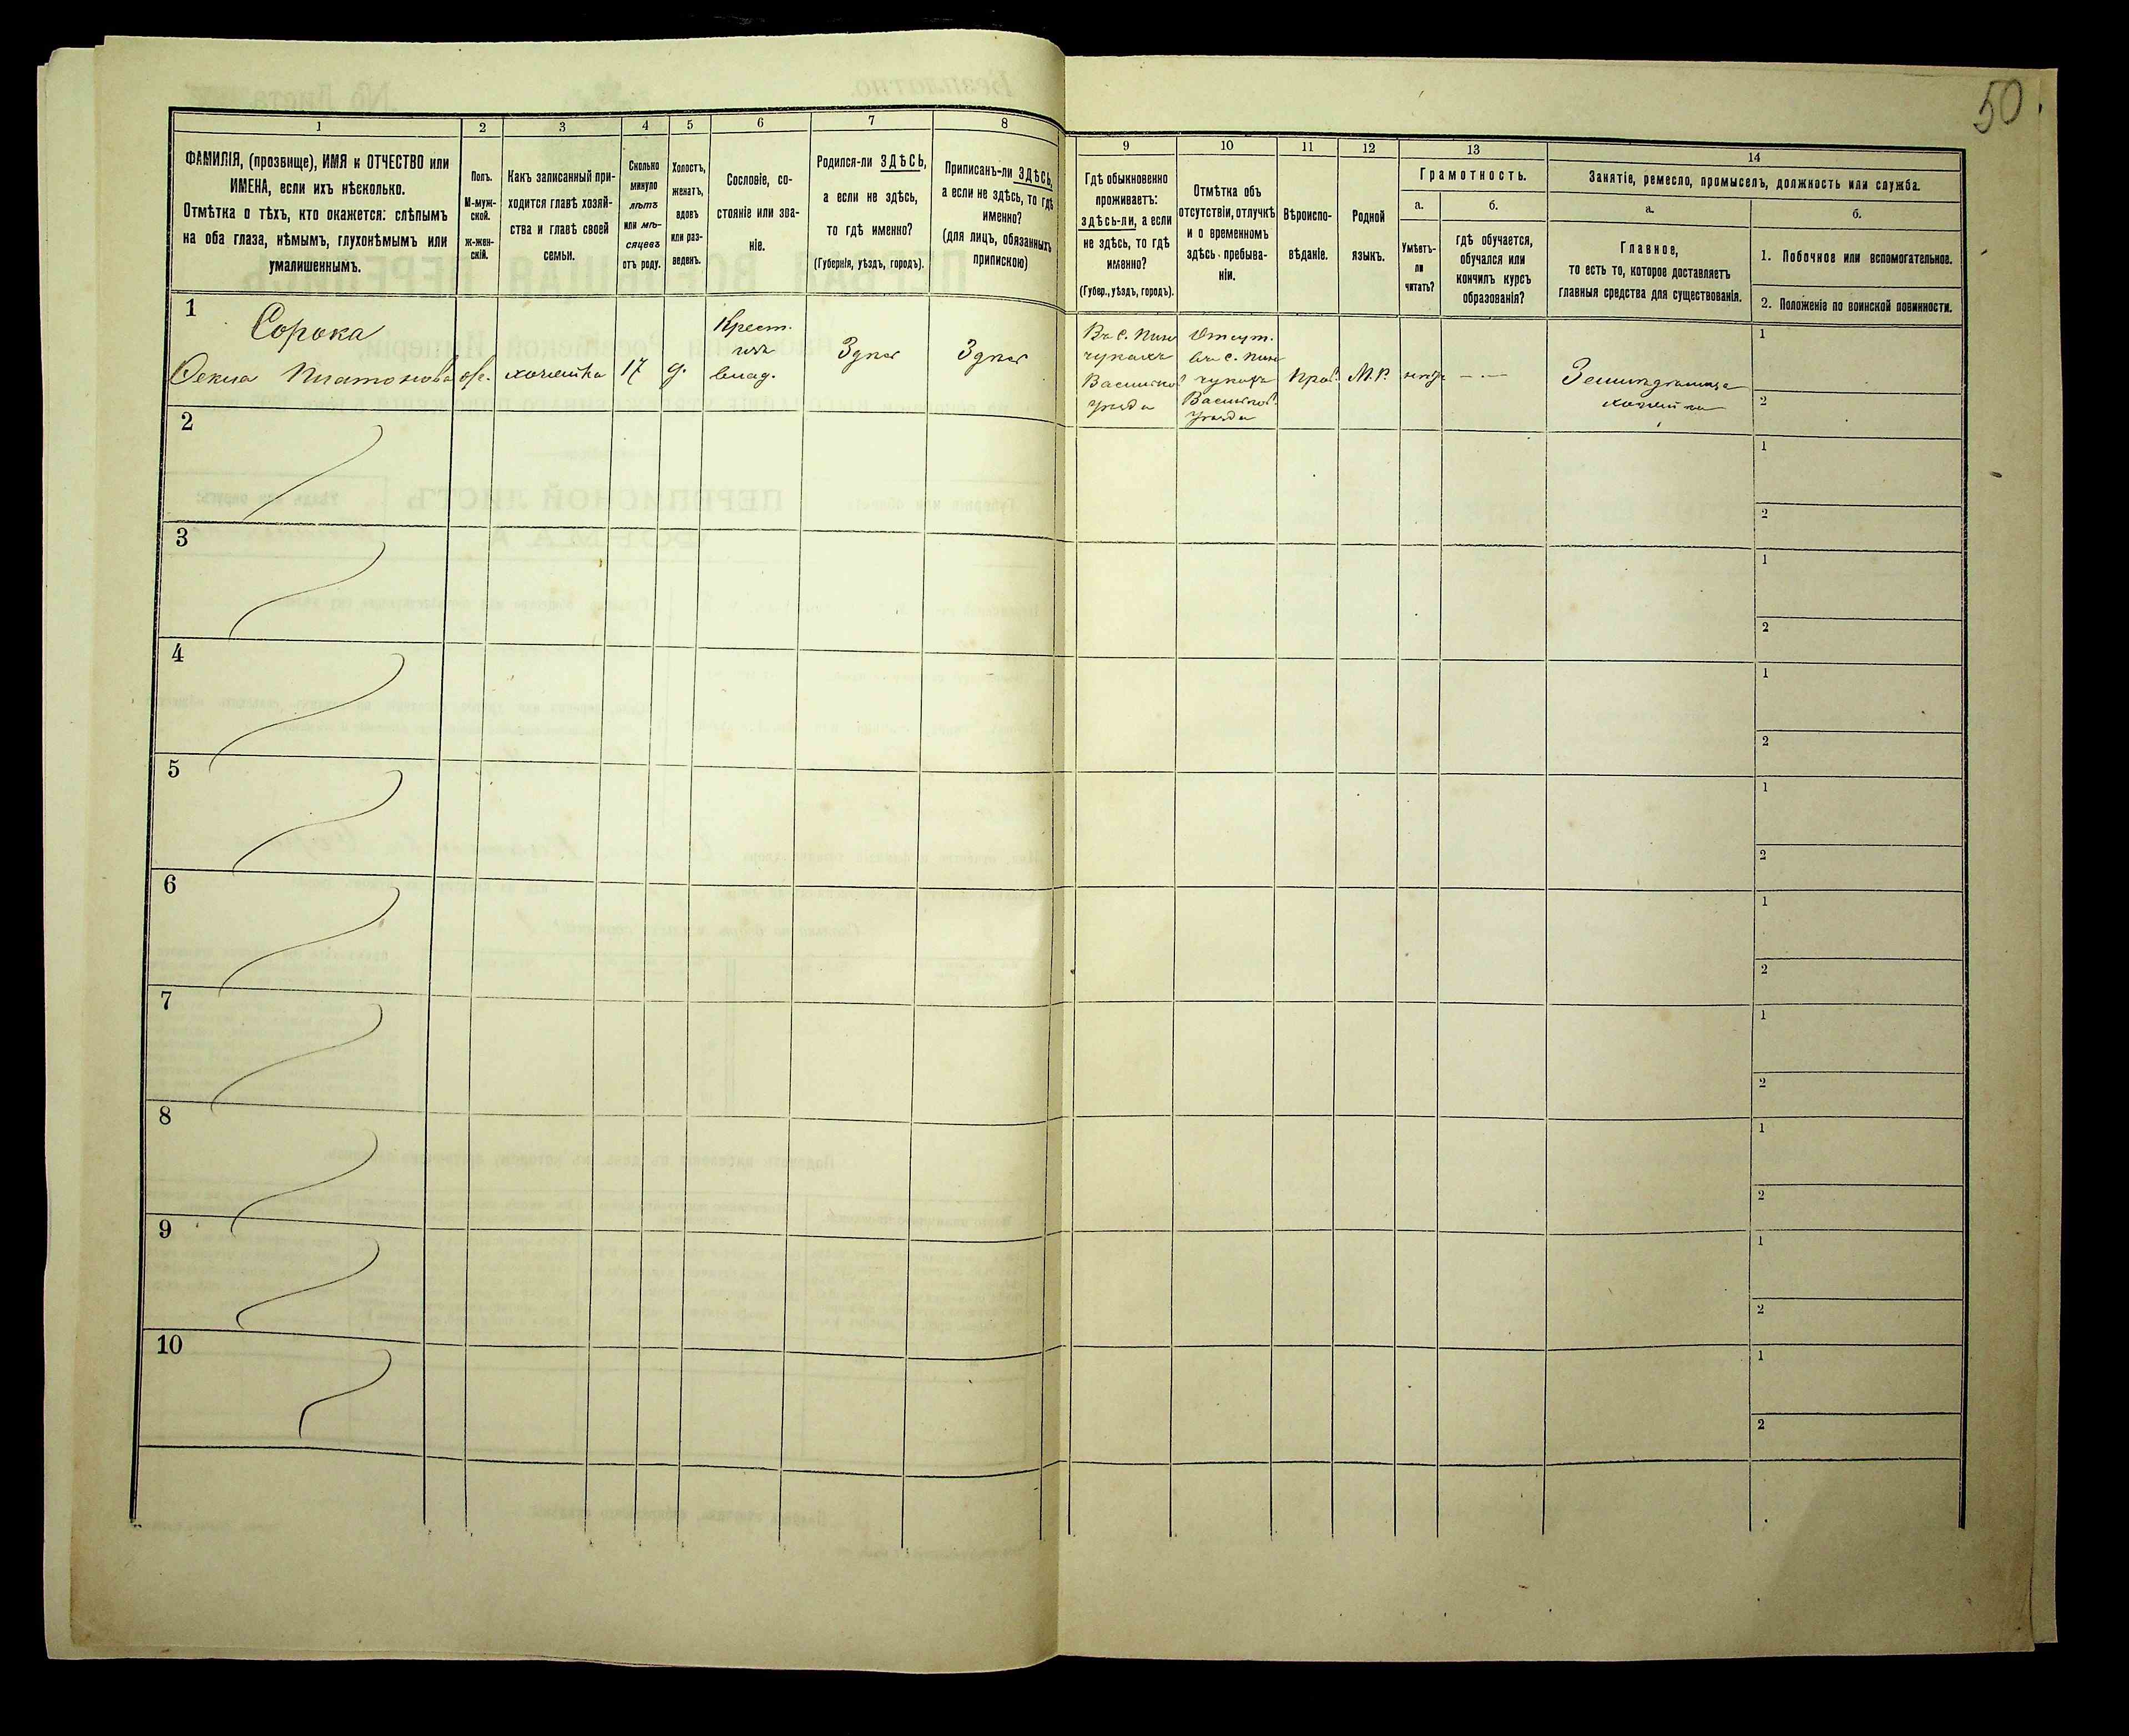 50.
1
2
3
4
5
6
7
8
ФАМИЛІЯ, (прозвище), ИМЯ и ОТЧЕСТВО или
ИМЕНА, если ихъ нѣсколько.
Отмѣтка о тѣхъ, кто окажется: слѣпымъ
на оба глаза, нѣмымъ, глухонѣмымъ или
умалишеннымъ.
Полъ.
М-муж-
ской.
ж-жен-
скій.
Какъ записанный при-
ходится главѣ хозяй-
ства и главѣ своей
семьи.
Сколько
минуло
лѣтъ
или мѣ-
сяцевъ
отъ роду.
Холостъ,
женатъ,
вдовъ
или раз-
веденъ.
Сословіе, со-
стояніе или зва-
ніе.
Родился-ли ЗДѢСЬ,
а если не здѣсь,
то гдѣ именно?
(Губернія, уѣздъ, городъ).
Приписанъ-ли ЗДѢСЬ,
а если не здѣсь, то гдѣ
именно?
(для лицъ, обязанныхъ
припискою)
9
10
11
12
13
14
Гдѣ обыкновенно
проживаетъ:
здѣсь-ли, а если
не здѣсь, то гдѣ
именно?
(Губер., уѣздъ, городъ).
Отмѣтка объ
отсутствіи, отлучкѣ
и о временномъ
здѣсь пребыва-
ніи.
Вѣроиспо-
вѣданіе.
Родной
языкъ.
Грамотность.
а.
б.
Умѣетъ-
ли
читать?
гдѣ обучается,
обучался или
кончилъ курсъ
образованія?
Занятіе, ремесло, промыселъ, должность или служба.
а.
б.
Главное,
то есть то, которое доставляетъ
главныя средства для существованія.
1. Побочное или вспомогательное.
2. Положеніе по воинской повинности.
1
Сорока
Платонова
ж.
хозяйка
17
д.
Крест.
изъ
влад.
Здѣсь
Здѣсь
Въ с.
Уѣзда
Отсут.
въ с.
Уѣзда
Прав.
М.Р.
нѣтъ
— —
хозяйка
1
2
2
1
2
3
1
2
4
1
2
5
1
2
6
1
2
7
1
2
8
1
2
9
1
2
10
1
2